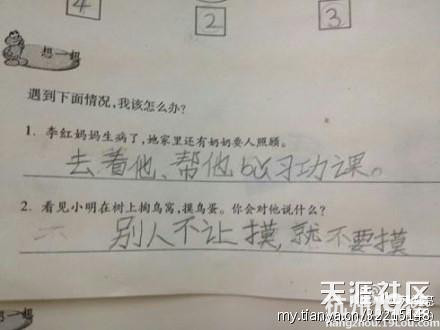 4
2
3
想一想
遇到下面情况,我该怎么办?
1. 李红妈妈生病了,她家里还有奶奶要人照顾。
去看他、帮他bǔ习功课。
2. 看见小明在树上掏鸟窝,摸鸟蛋。你会对他说什么?
别人不让摸,就不要摸
天涯社区
my.tianya.cn/82215148
hangzhou.19lou.com
想一